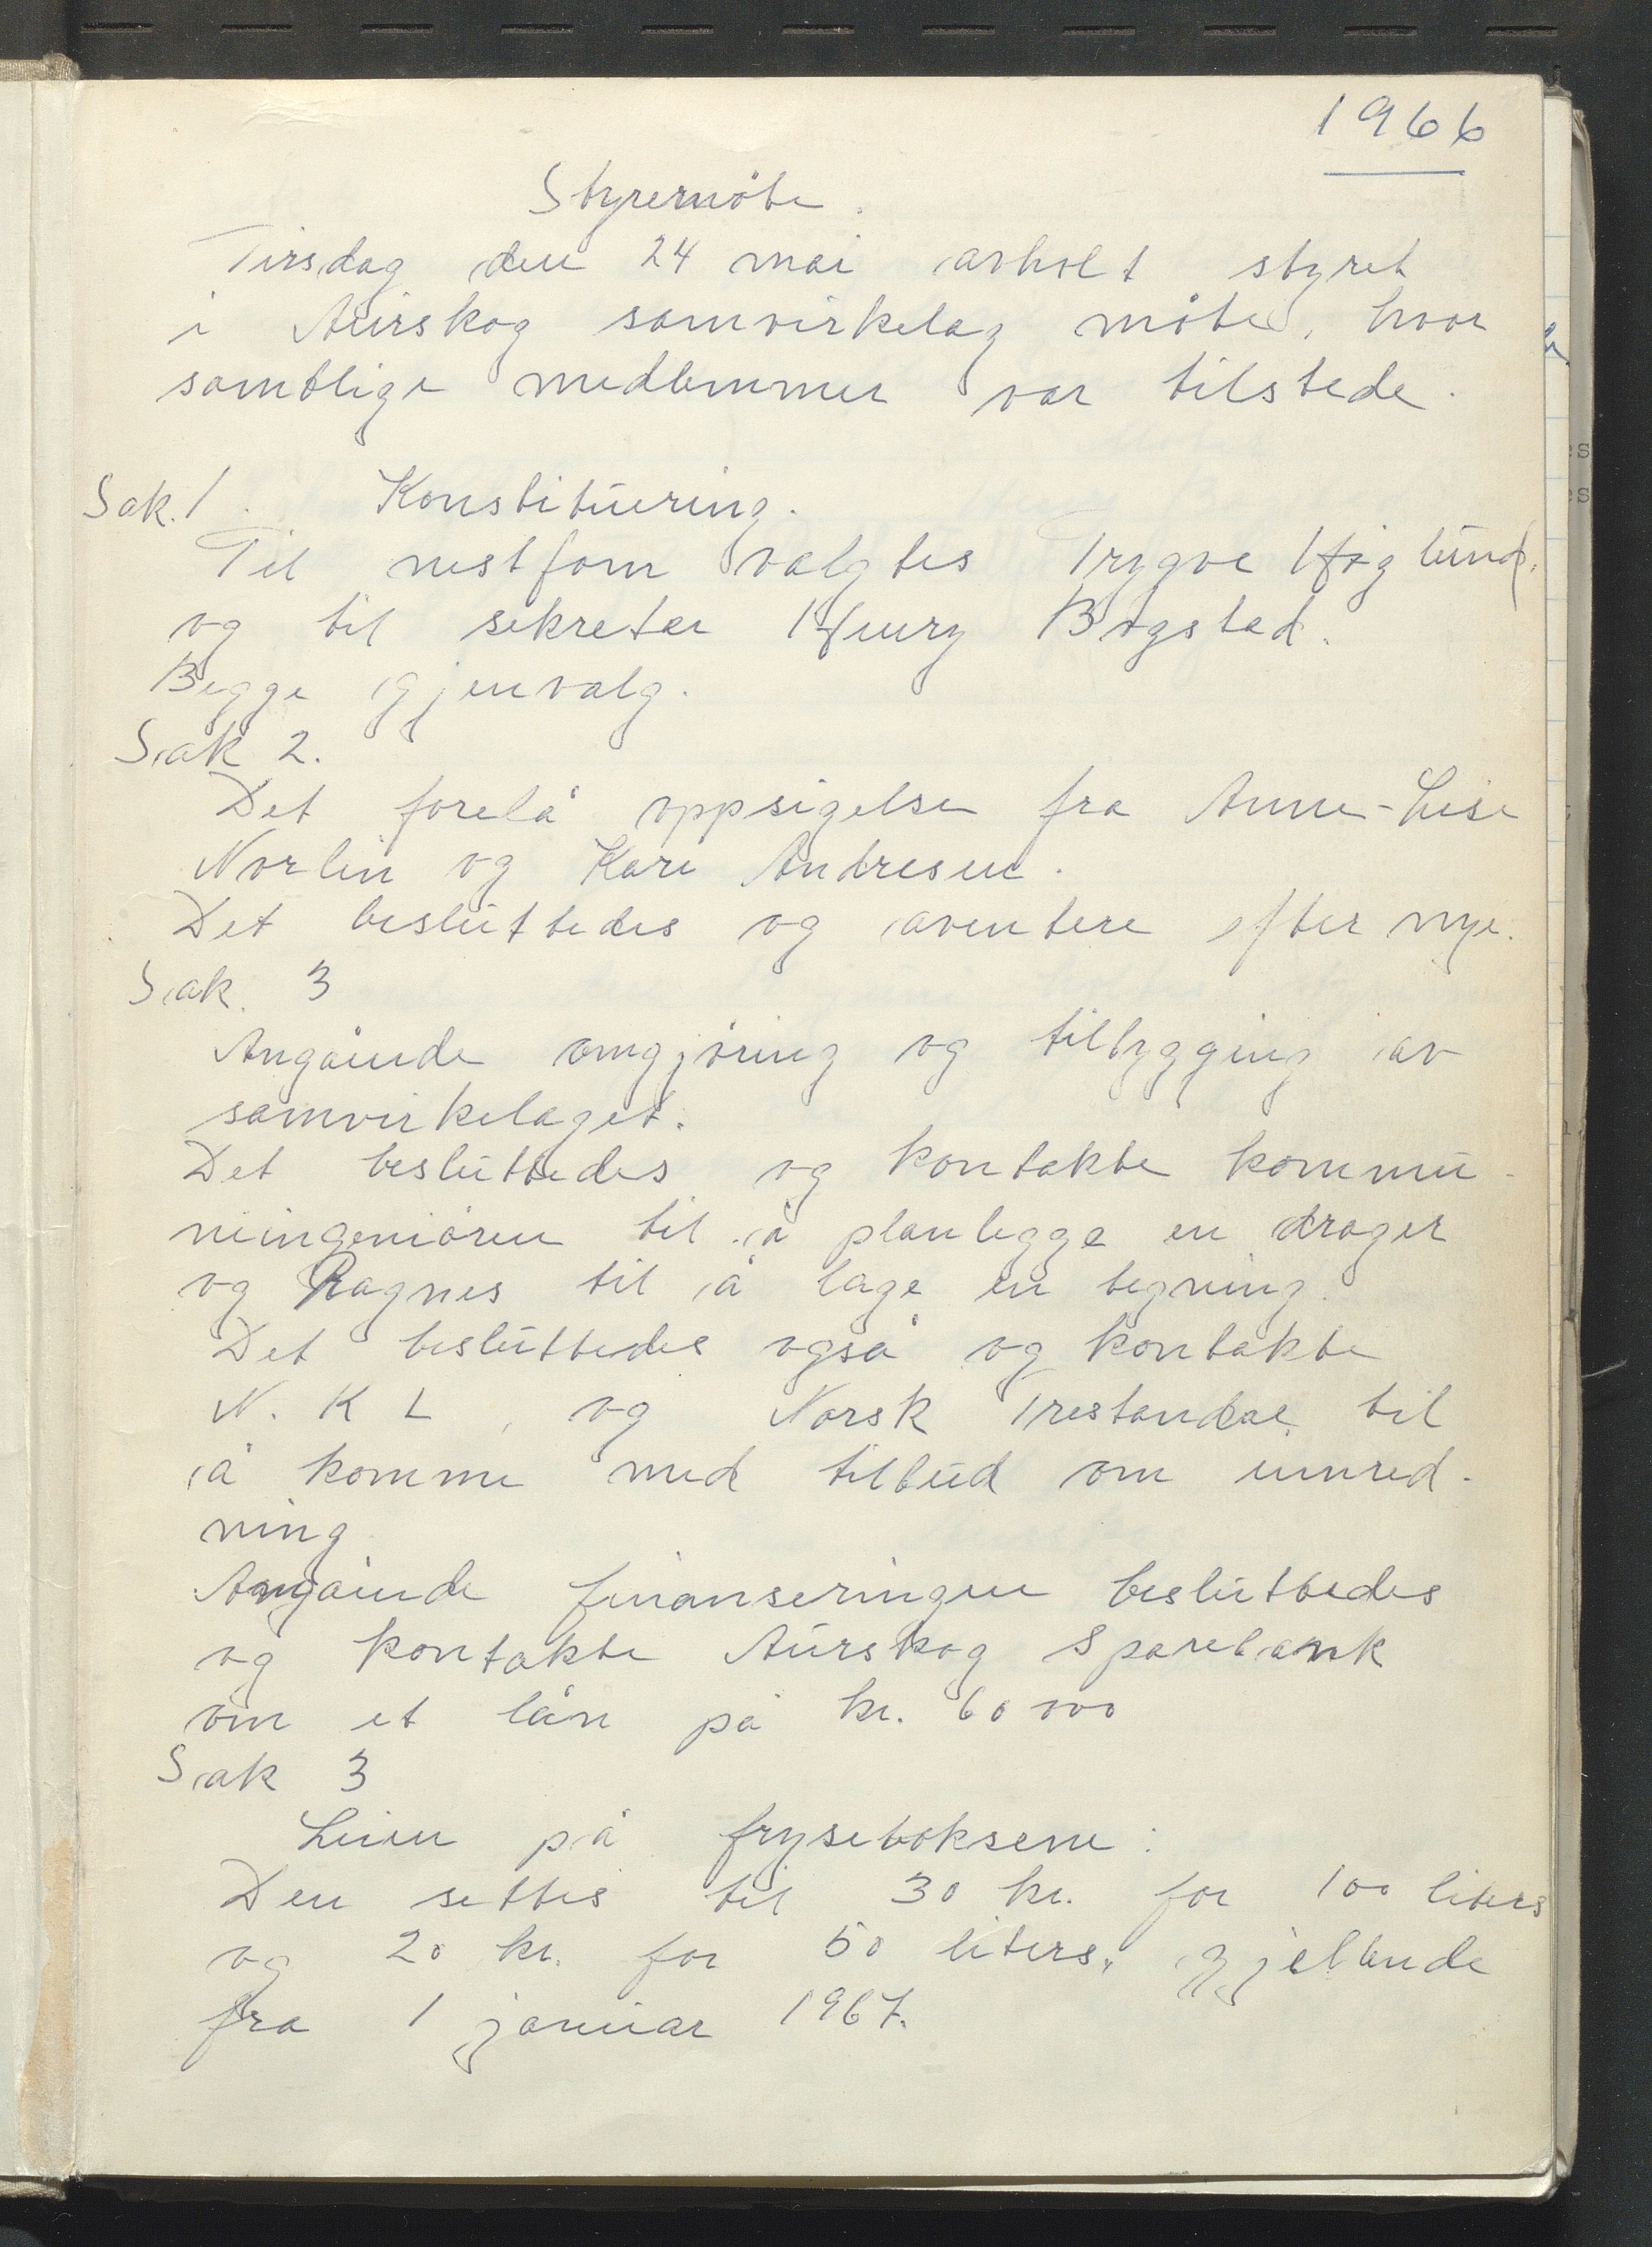 1966
Styremöte.
Tirsdag den 24 mai avholt styret
i Aurskog samvirkelag möte, hvor
samtlige medlemmer var tilstede.
Sak. 1. Konstituering.
Til nestform valgtes Trygve Höglund,
og til sekretær Henry Bogstad.
Begge gjenvalg.
Sak 2.
Det forelå oppsigelse fra Anne-Lise
Norlin og Kari Andresen.
Det besluttedes og aventere efter nye.
Sak. 3
Angående omgjöring og tilbygging av
samvirkelaget.
Det besluttedes og kontakte kommu-
neingeniören til å planlegge en drager
og Ragnes til å lage en tegning.
Det besluttedes også og kontakte
N. K L, og Norsk Trestandar til
å komme med tilbud om innred-
ning
Angående finanseringen besluttedes
og kontakte Aurskog Sparebank
om et lån på kr. 60 000
Sak 3
Leien på fryseboksene:
Den settes til 30 kr. for 100 liters
og 20 kr. for 50 liters, gjeldende
fra 1 januar 1967.